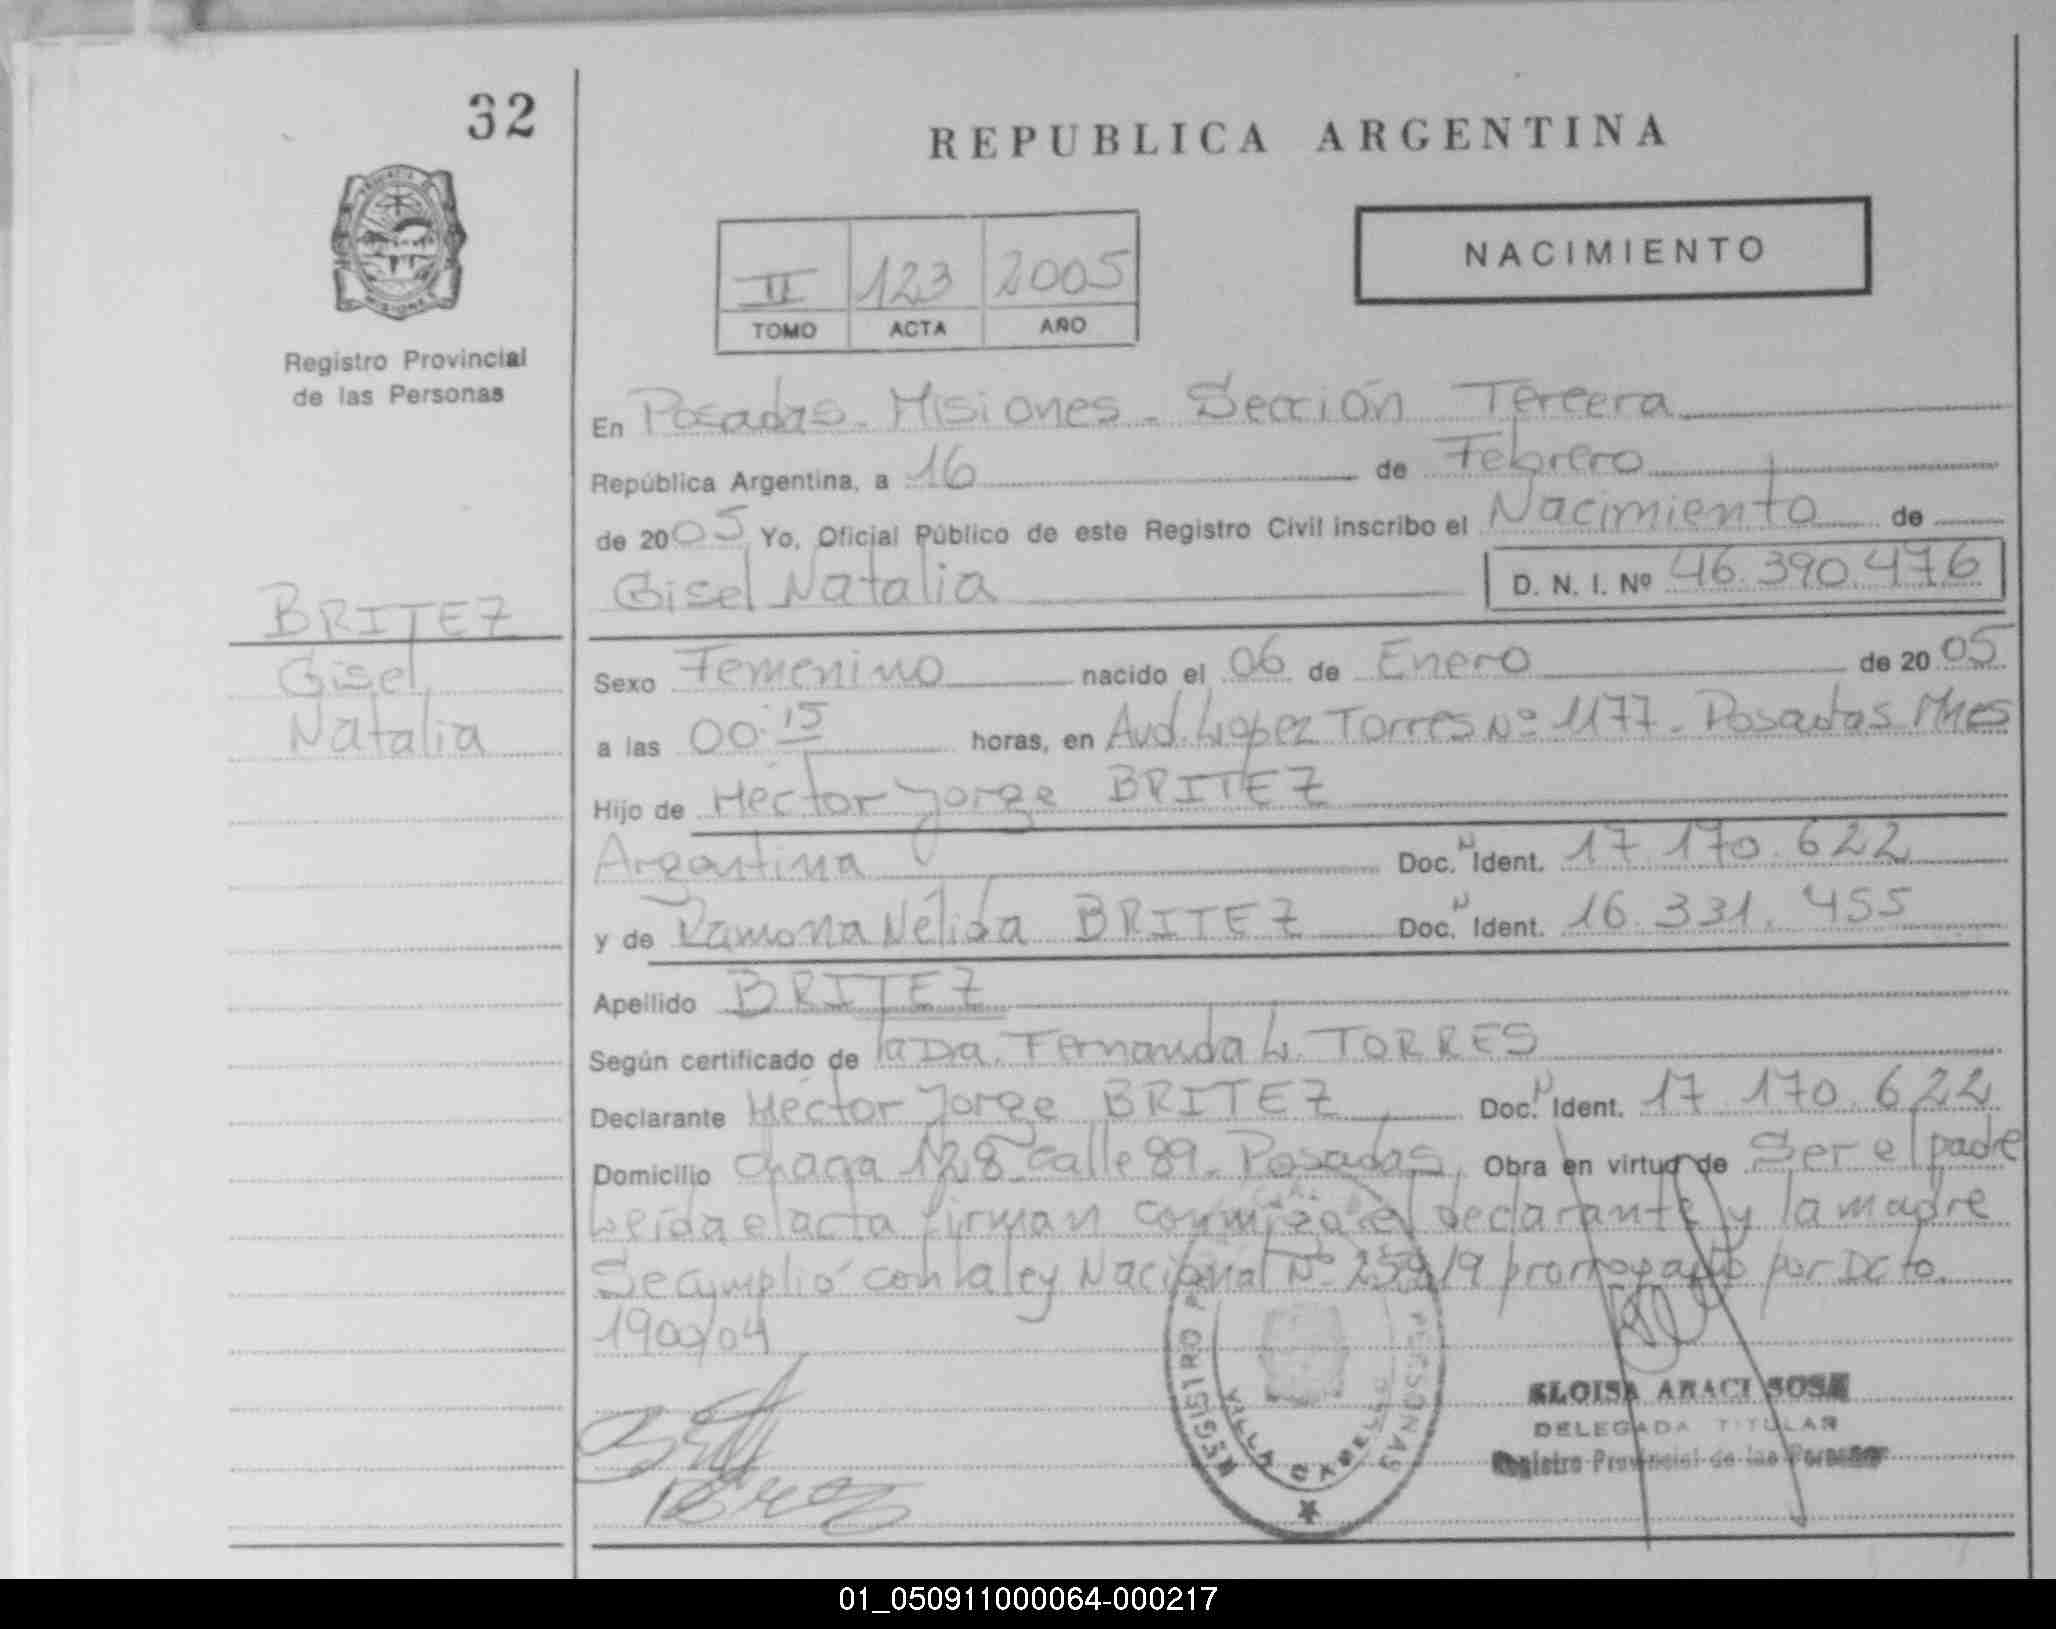 32
REPUBLICA ARGENTINA
NACIMIENTO
II 123 2005
TOMO ACTA AÑO
Registro Provincial
de las Personas
En Posadas - Misiones - Sección Tercera
República Argentina, a 16 de Febrero
de 2005 Yo, Oficial Público de este Registro Civil inscribo el Nacimiento de
Gisel Natalia D. N. I. Nº 46.390.476
BRITEZ
Gisel
Natalia
Sexo Femenino nacido el 06 de Enero de 2005
a las 00:15 horas, en Avd. López Torres Nº 1177 - Posadas Mnes
Hijo de Héctor Jorge BRITEZ
Argentina Doc. N Ident. 17.170.622
y de Ramona Nélida BRITEZ Doc. N Ident. 16.331.455
Apellido BRITEZ
Según certificado de la Dra. Fernanda L. TORRES
Declarante Héctor Jorge BRITEZ Doc. N Ident. 17.170.622
Domicilio chaca 128 - calle 89 - Posadas Obra en virtud de Ser el padre
Leída el acta firman conmigo el declarante y la madre
Se cumplió con la ley Nacional Nº 25819 prorrogado por Dcto.
1900/04
REGISTRO PERSONAS
VILLA CABELLO
ELOISA ARACI SOSA
DELEGADA TITULAR
Registro Provincial de las Personas
01_050911000064-000217